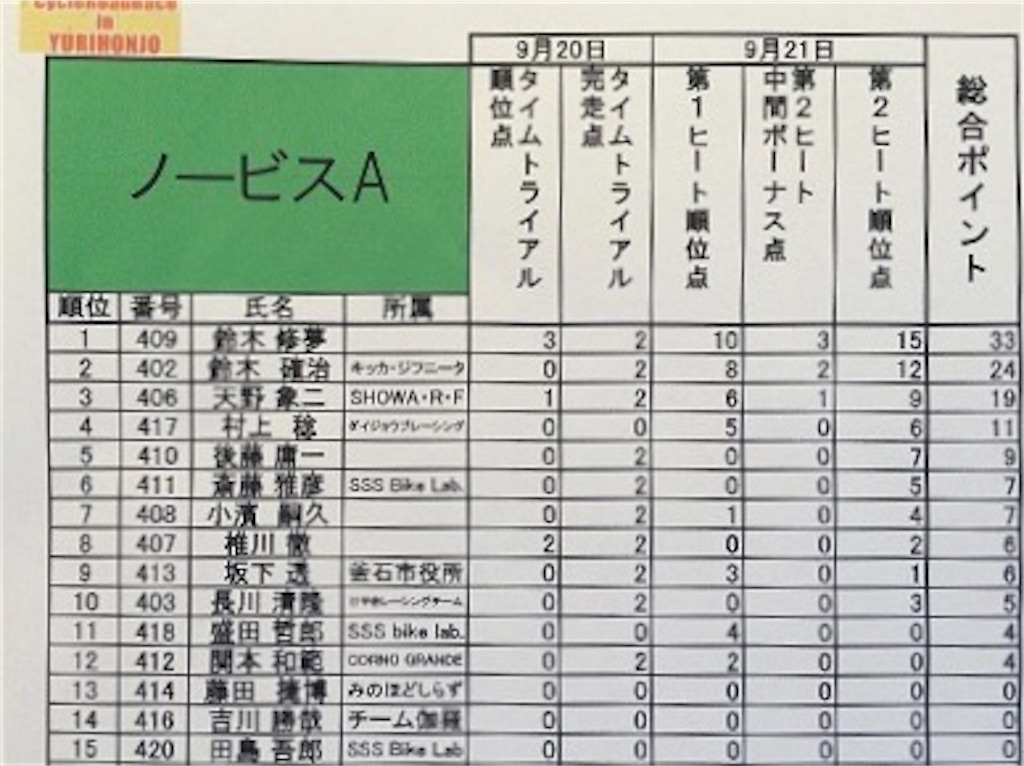 in
YURIHONJO
9月20日 9月21日
ノービスA
タイムトライアル順位点
タイムトライアル完走点
第1ヒート順位点
第2ヒート中間ボーナス点
第2ヒート順位点
総合ポイント
順位 番号 氏名 所属
1 409 鈴木 修夢 3 2 10 3 15 33
2 402 鈴木 確治 キッカ・ジフニータ 0 2 8 2 12 24
3 406 天野 象二 SHOWA・R・F 1 2 6 1 9 19
4 417 村上 稔 ダイジョウブレーシング 0 0 5 0 6 11
5 410 後藤 庸一 0 2 0 0 7 9
6 411 斎藤 雅彦 SSS Bike Lab. 0 2 0 0 5 7
7 408 小濱 嗣久 0 2 1 0 4 7
8 407 椎川 徹 2 2 0 0 2 6
9 413 坂下 透 釜石市役所 0 2 3 0 1 6
10 403 長川 清隆 0 2 0 0 3 5
11 418 盛田 哲郎 SSS bike lab. 0 0 4 0 0 4
12 412 関本 和範 CORNO GRANDE 0 2 2 0 0 4
13 414 藤田 捷博 みのほどしらず 0 0 0 0 0 0
14 416 吉川 勝哉 チーム伽羅 0 0 0 0 0 0
15 420 田島 吾郎 SSS Bike Lab 0 0 0 0 0 0